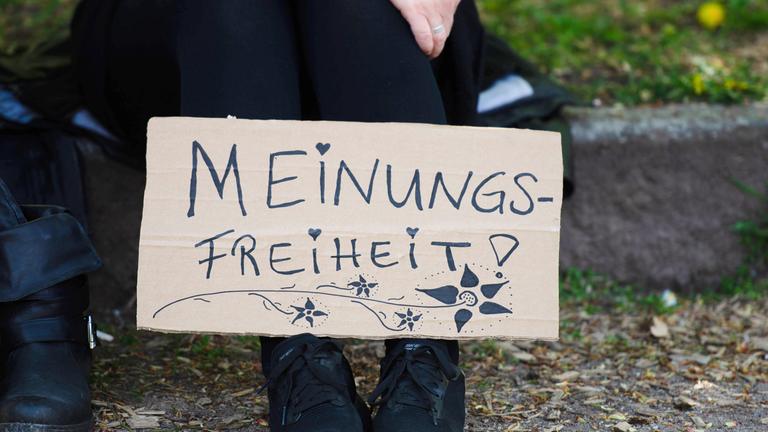 MEiNUNGS-
FREiHEiT!